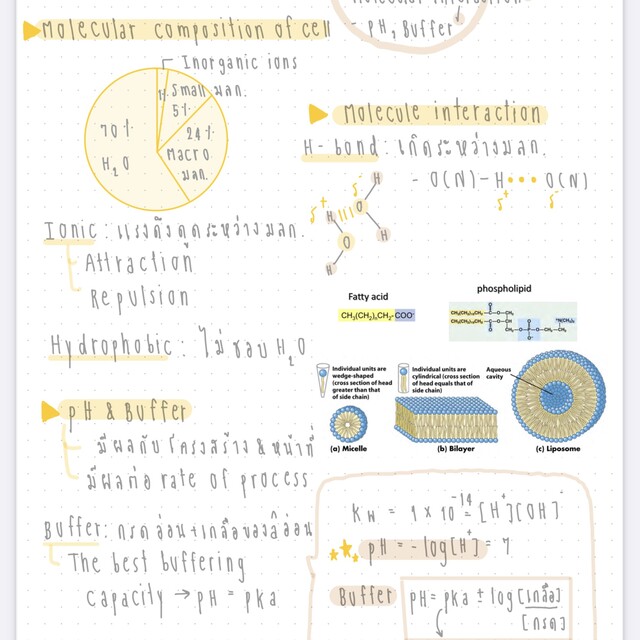 - pH, Buffer
Molecular composition of cell
Inorganic ions
1% Small มลก.
5%
70%
H₂O
24%
Macro
มลก.
Ionic : แรงดึงดูดระหว่าง มลก.
Attraction
Repulsion
Hydrophobic : ไม่ชอบ H₂O
pH & Buffer
มีผลกับโครงสร้าง & หน้าที่
มีผลต่อ rate of process
Buffer : กรดอ่อน + เกลือของกรดอ่อน
The best buffering
capacity → pH = pka
Molecule interaction
H-bond : เกิดระหว่าง มลก.
- O(N)-H••• O(N)
δ⁺ δ⁻
δ⁻ H
δ⁺ H O
O H
H
Fatty acid
CH₃(CH₂)ₙCH₂-COO⁻
phospholipid
Individual units are
wedge-shaped
(cross section of head
greater than that
of side chain)
Individual units are
cylindrical (cross section
of head equals that of
side chain)
Aqueous
cavity
(a) Micelle
(b) Bilayer
(c) Liposome
Kw = 1 x 10⁻¹⁴ = [H⁺][OH]⁻
pH = -log[H⁺] = 7
Buffer
pH = pka ± log [เกลือ]
[กรด]